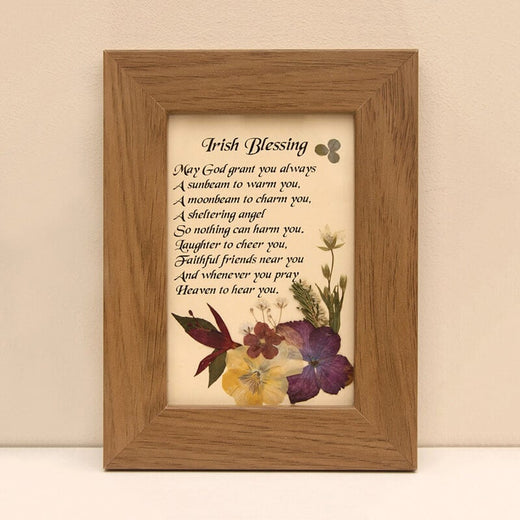 Irish Blessing
May God grant you always
A sunbeam to warm you,
A moonbeam to charm you,
A sheltering angel
So nothing can harm you.
Laughter to cheer you,
Faithful friends near you
And whenever you pray,
Heaven to hear you.